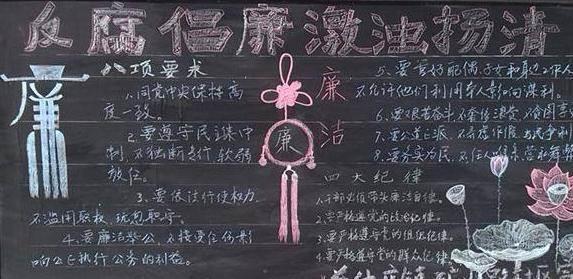 反腐倡廉激浊扬清
廉
八项要求
1、同党中央保持高
度一致。
2、要遵守民主集中
制,不独断专行、软弱
放任。
3、要依法行使权力、
不滥用职权、玩忽职守。
4、要廉洁奉公、不接受任何影
响公正执行公务的利益。
廉
廉洁
5、要管好配偶、子女和身边工作人
不允许他们利用本人影响谋利。
6、要艰苦奋斗、不奢侈浪费、
7、要公道正派、不弄虚作假、
8、要务实为民、不
四大纪律
1、干部必须带头廉洁自律。
2、要严格遵守党的政治纪律。
3、要严格遵守党的组织纪律。
4、要严格遵守党的群众纪律。